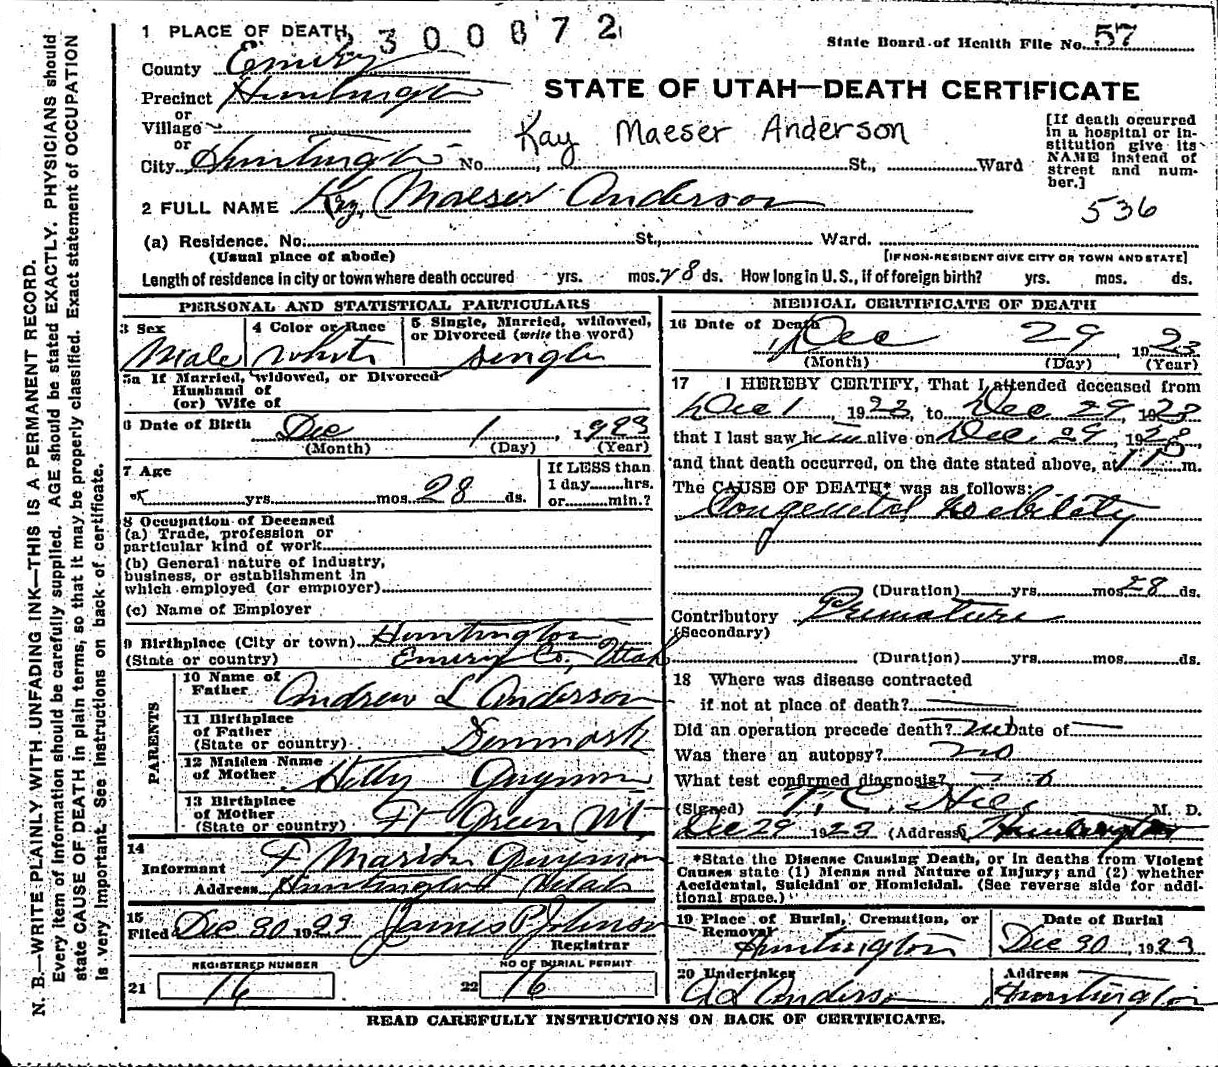 1 PLACE OF DEATH 2300872
State Board of Health File No. 57
County Emery
Precinct Huntington
or
Village
or
City Huntington No. St., Ward
STATE OF UTAH—DEATH CERTIFICATE
Kay Maeser Anderson
[If death occurred
in a hospital or in-
stitution give its
NAME instead of
street and num-
ber.]
536
2 FULL NAME Kay Maeser Anderson
(a) Residence. No. St., Ward.
(Usual place of abode) [IF NON-RESIDENT GIVE CITY OR TOWN AND STATE]
Length of residence in city or town where death occured yrs. mos. 28 ds. How long in U. S., if of foreign birth? yrs. mos. ds.
PERSONAL AND STATISTICAL PARTICULARS
3 Sex
Male
4 Color or Race
White
5 Single, Married, widowed,
or Divorced (write the word)
single
5a If Married, widowed, or Divorced
Husband of
(or) Wife of
6 Date of Birth Dec 1, 1923
(Month) (Day) (Year)
7 Age
yrs. mos. 28 ds.
If LESS than
1 day hrs.
or min.?
8 Occupation of Deceased
(a) Trade, profession or
particular kind of work
(b) General nature of industry,
business, or establishment in
which employed (or employer)
(c) Name of Employer
9 Birthplace (City or town) Huntington
(State or country) Emery Co., Utah
PARENTS
10 Name of
Father Andrew L Anderson
11 Birthplace
of Father
(State or country) Denmark
12 Maiden Name
of Mother Guymon
13 Birthplace
of Mother
(State or country) Ft Green Ut
14
Informant Marion Guymon
Address Huntington Utah
15
Filed Dec 30 1923 James P Johnson
Registrar
REGISTERED NUMBER
21 16
NO OF BURIAL PERMIT
22 16
MEDICAL CERTIFICATE OF DEATH
16 Date of Death
Dec 29 1923
(Month) (Day) (Year)
17 I HEREBY CERTIFY, That I attended deceased from
Dec 1, 1923, to Dec 29, 1923
that I last saw him alive on Dec. 29, 1923
and that death occurred, on the date stated above, at 11 P m.
The CAUSE OF DEATH* was as follows:
Congenital Debility
(Duration) yrs. mos. 28 ds.
Contributory Premature
(Secondary)
(Duration) yrs. mos. ds.
18 Where was disease contracted
if not at place of death?
Did an operation precede death? no Date of
Was there an autopsy? no
What test confirmed diagnosis?
(Signed) T. C. Hill M. D.
Dec 29 1923 (Address) Huntington
*State the Disease Causing Death, or in deaths from Violent
Causes state (1) Menas and Nature of Injury; and (2) whether
Accidental, Suicidal or Homicidal. (See reverse side for addi-
tional space.)
19 Place of Burial, Cremation, or
Removal
Huntington
Date of Burial
Dec 30, 1923
20 Undertaker
A L Anderson
Address
Huntington
READ CAREFULLY INSTRUCTIONS ON BACK OF CERTIFICATE.
N. B.—WRITE PLAINLY WITH UNFADING INK—THIS IS A PERMANENT RECORD.
Every item of information should be carefully supplied. AGE should be stated EXACTLY. PHYSICIANS should
state CAUSE OF DEATH in plain terms, so that it may be properly classified. Exact statement of OCCUPATION
is very important. See instructions on back of certificate.